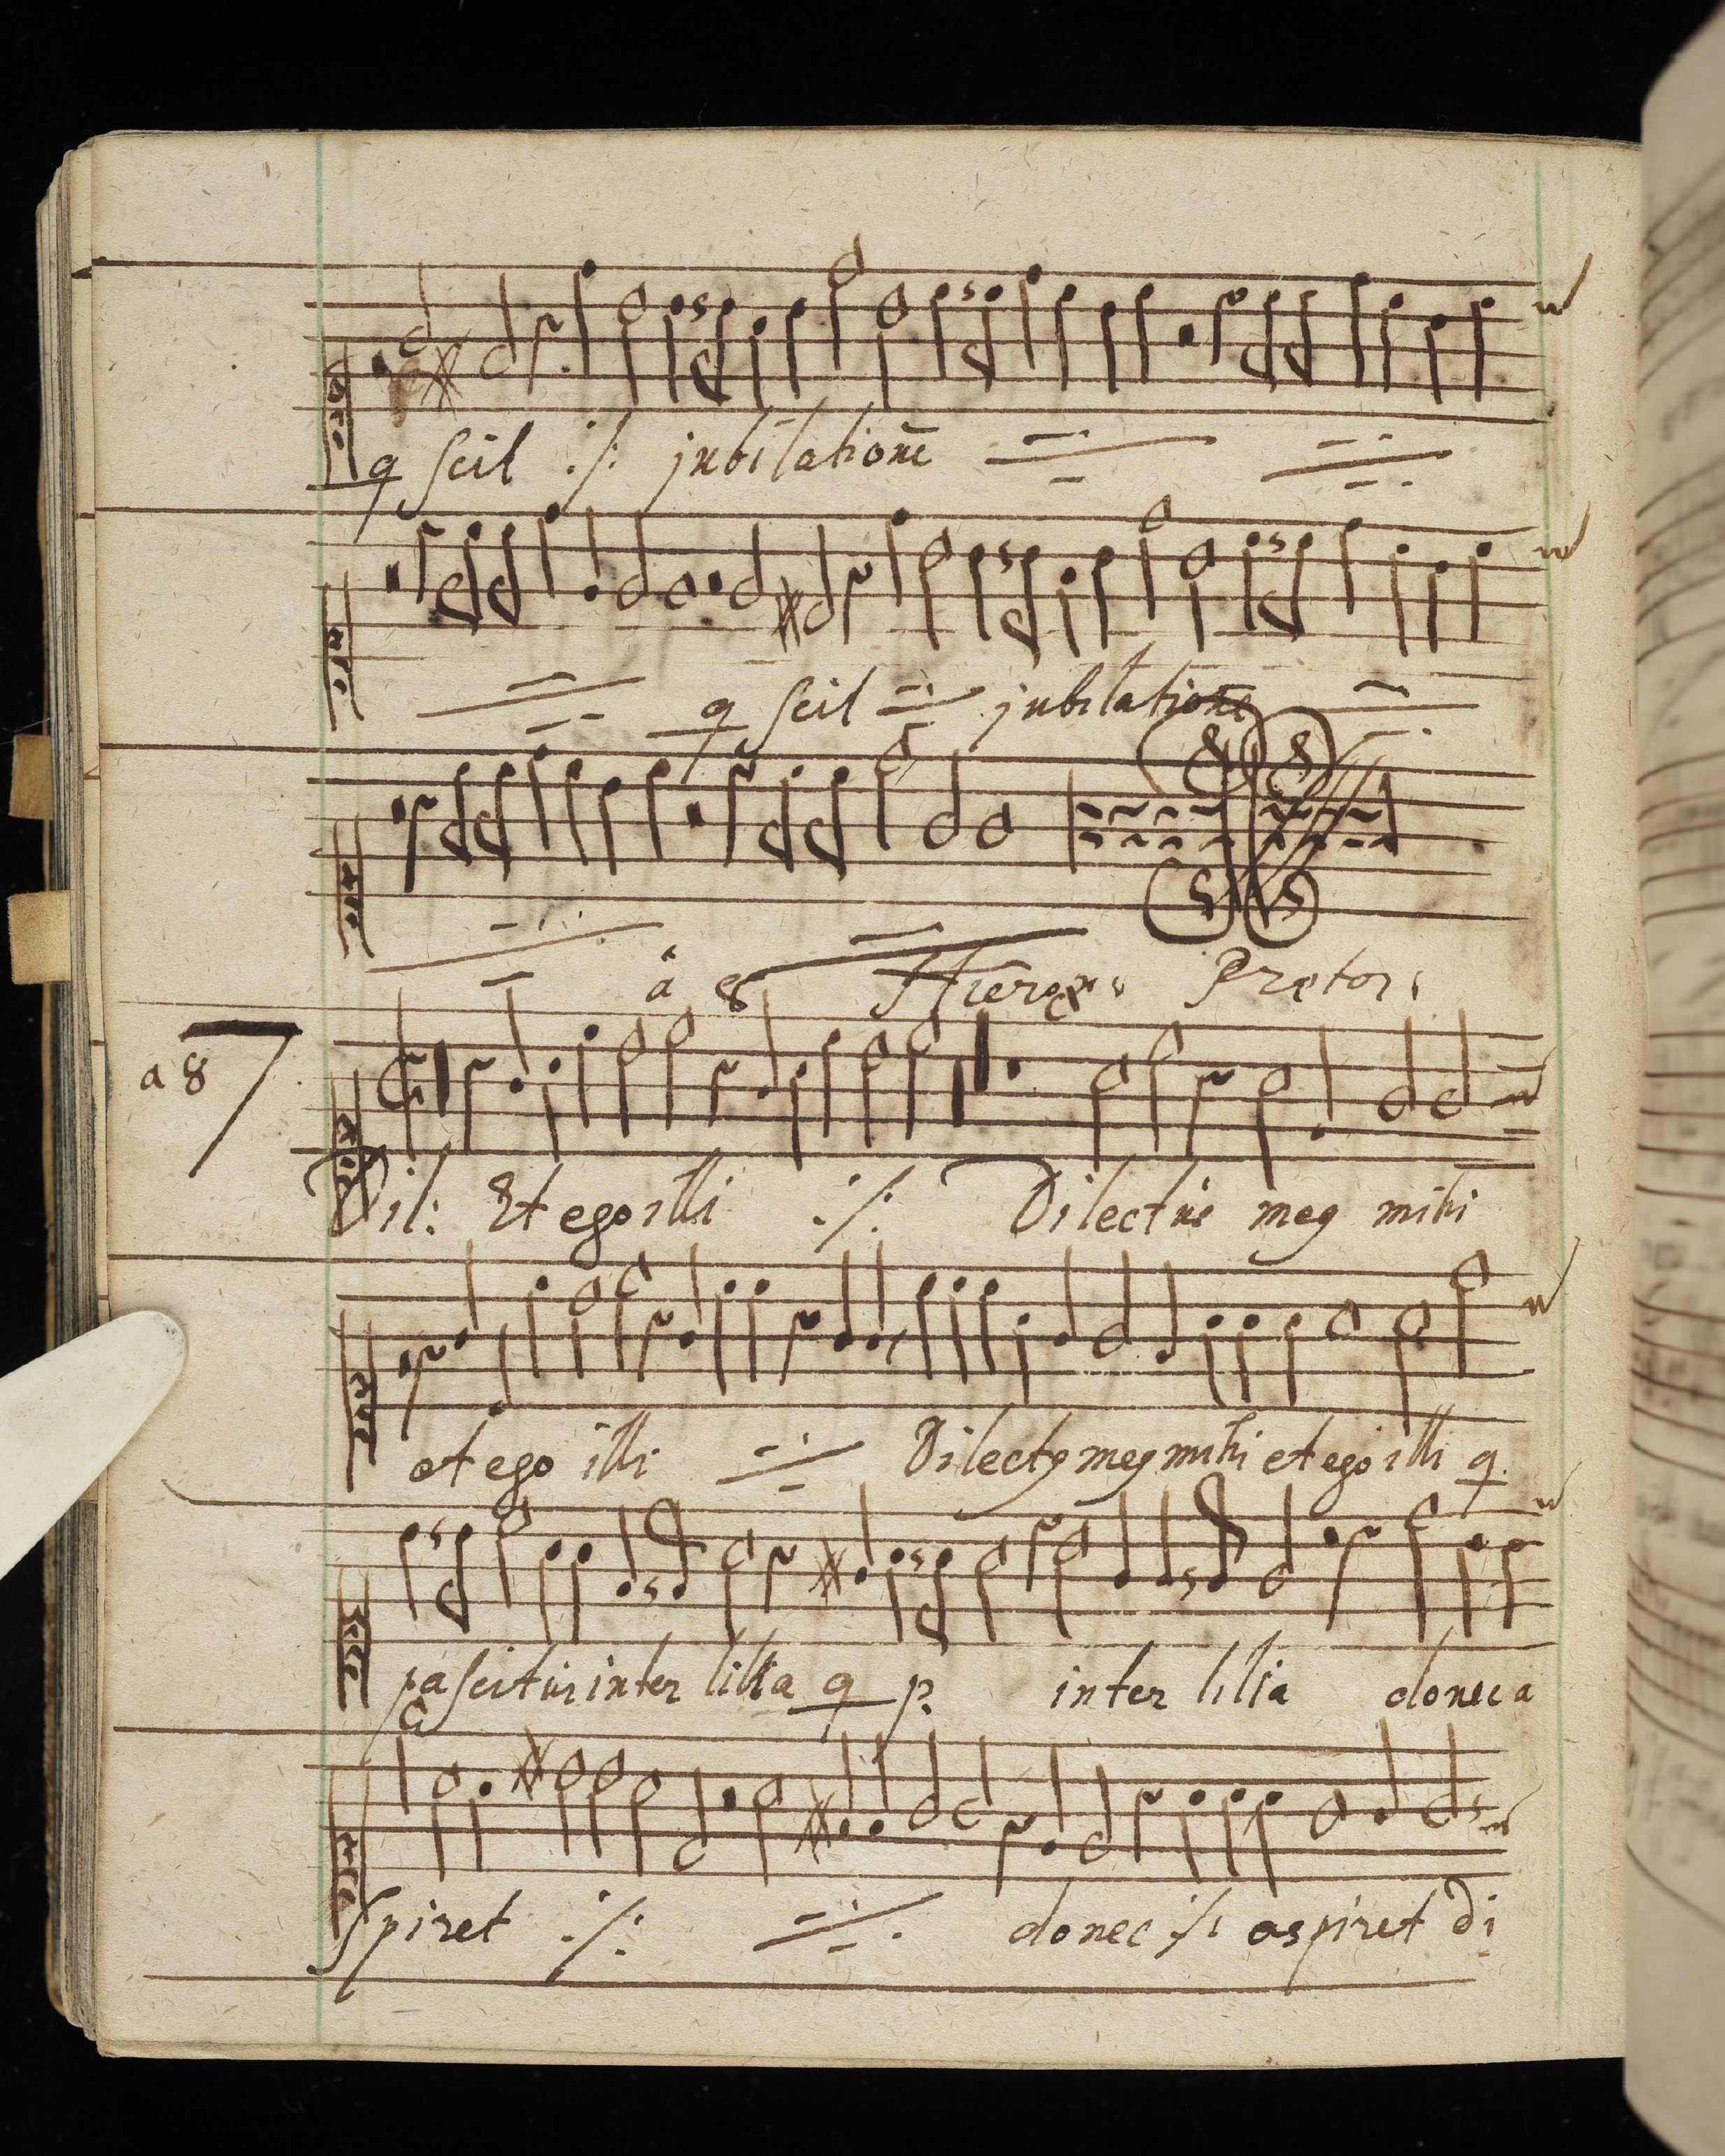 q scil ./. jubilationē
q scil jubilatione
â 8 Hieron: Prætor:
a 8 7
Dil: Et ego illi ./. Dilectus meq mihi
et ego illi Dilectq meq mihi et ego illi q
pascitur inter lilia q p. inter lilia donec a
spiret ./. donec ./. aspiret di